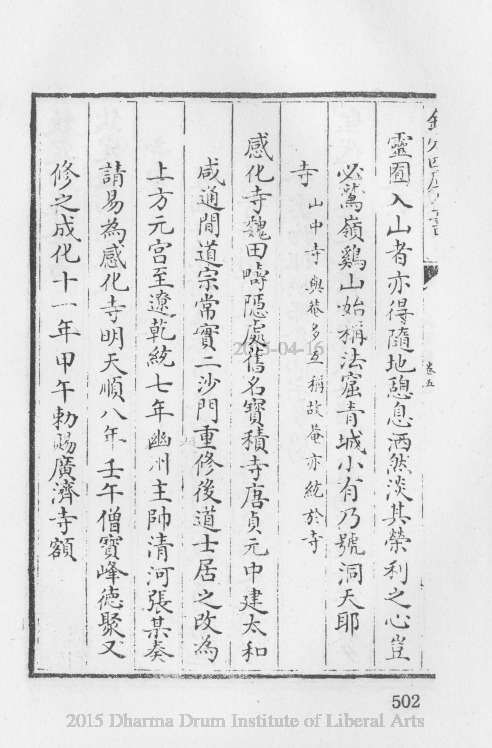 靈囿入山者亦得隨地憩息洒然淡其榮利之心豈
必鷲嶺鷄山始稱法窟青城小有乃號洞天耶
寺山中寺與菴多互稱故菴亦統於寺
感化寺魏田疇隱處舊名寶積寺唐貞元中建太和
咸通間道宗常實二沙門重修後道士居之改為
上方元宫至遼乾統七年幽州主帥清河張某奏
請易為感化寺明天順八年壬午僧寶峰徳聚又
修之成化十一年甲午勅賜廣濟寺額
卷五
2015-04-16
502
2015 Dharma Drum Institute of Liberal Arts